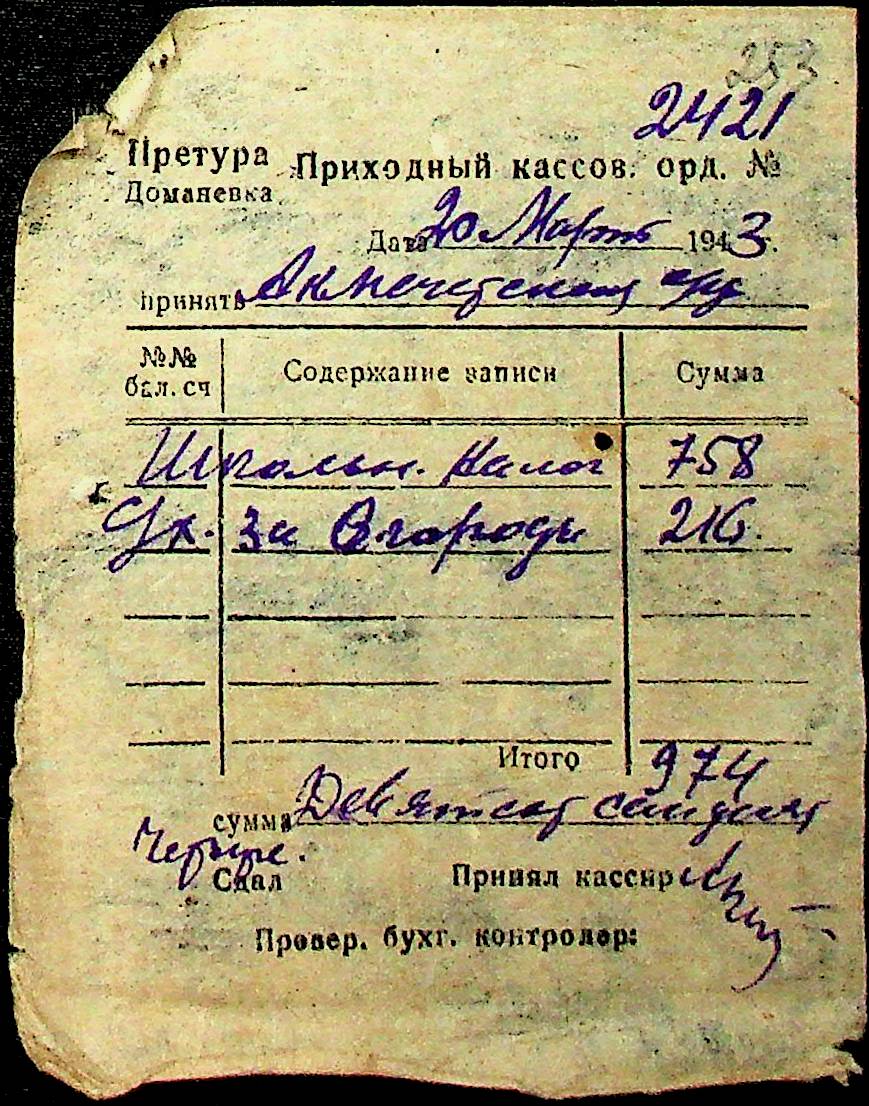 253
2421
Претура Приходный кассов. орд. №
Доманевка
Дата 20 Март 1943 г.
принять Акмечетская
№№ бал. сч Содержание записи Сумма
Школьн. Налог 758
за Огороды 216.
Итого 974
сумма Девятсот семдесят
Четыре.
Сдал Принял кассир
Провер. бухг. контролер: